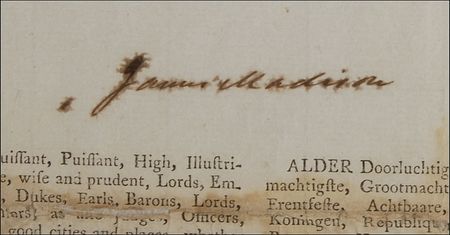 James Madison
uiſſant, Puiſſant, High, Illuſtri-
e, wiſe and prudent, Lords, Em-
, Dukes, Earls, Barons, Lords,
as Judges, Officers,
good cities and places, whether
ALDER Doorluchtig
machtigſte, Grootmacht
Erentfeſte, Achtbaare,
Koningen, Republiq